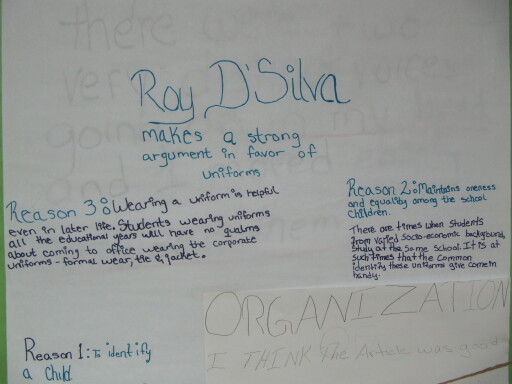 Roy D'Silva
makes a strong
argument in favor of
uniforms
Reason 3: Wearing a uniform is helpful
even in later life. Students wearing uniforms
all the educational years will have no qualms
about coming to office wearing the corporate
uniforms - formal wear, tie & jacket.
Reason 2: Maintains oneness
and equality among the school
children.
There are times when students
from varied socio-economic background,
study at the same school. It is at
such times that the common
identity these uniforms give come in
handy.
Reason 1: To identify
a child
ORGANIZATION
I THINK The Article was good